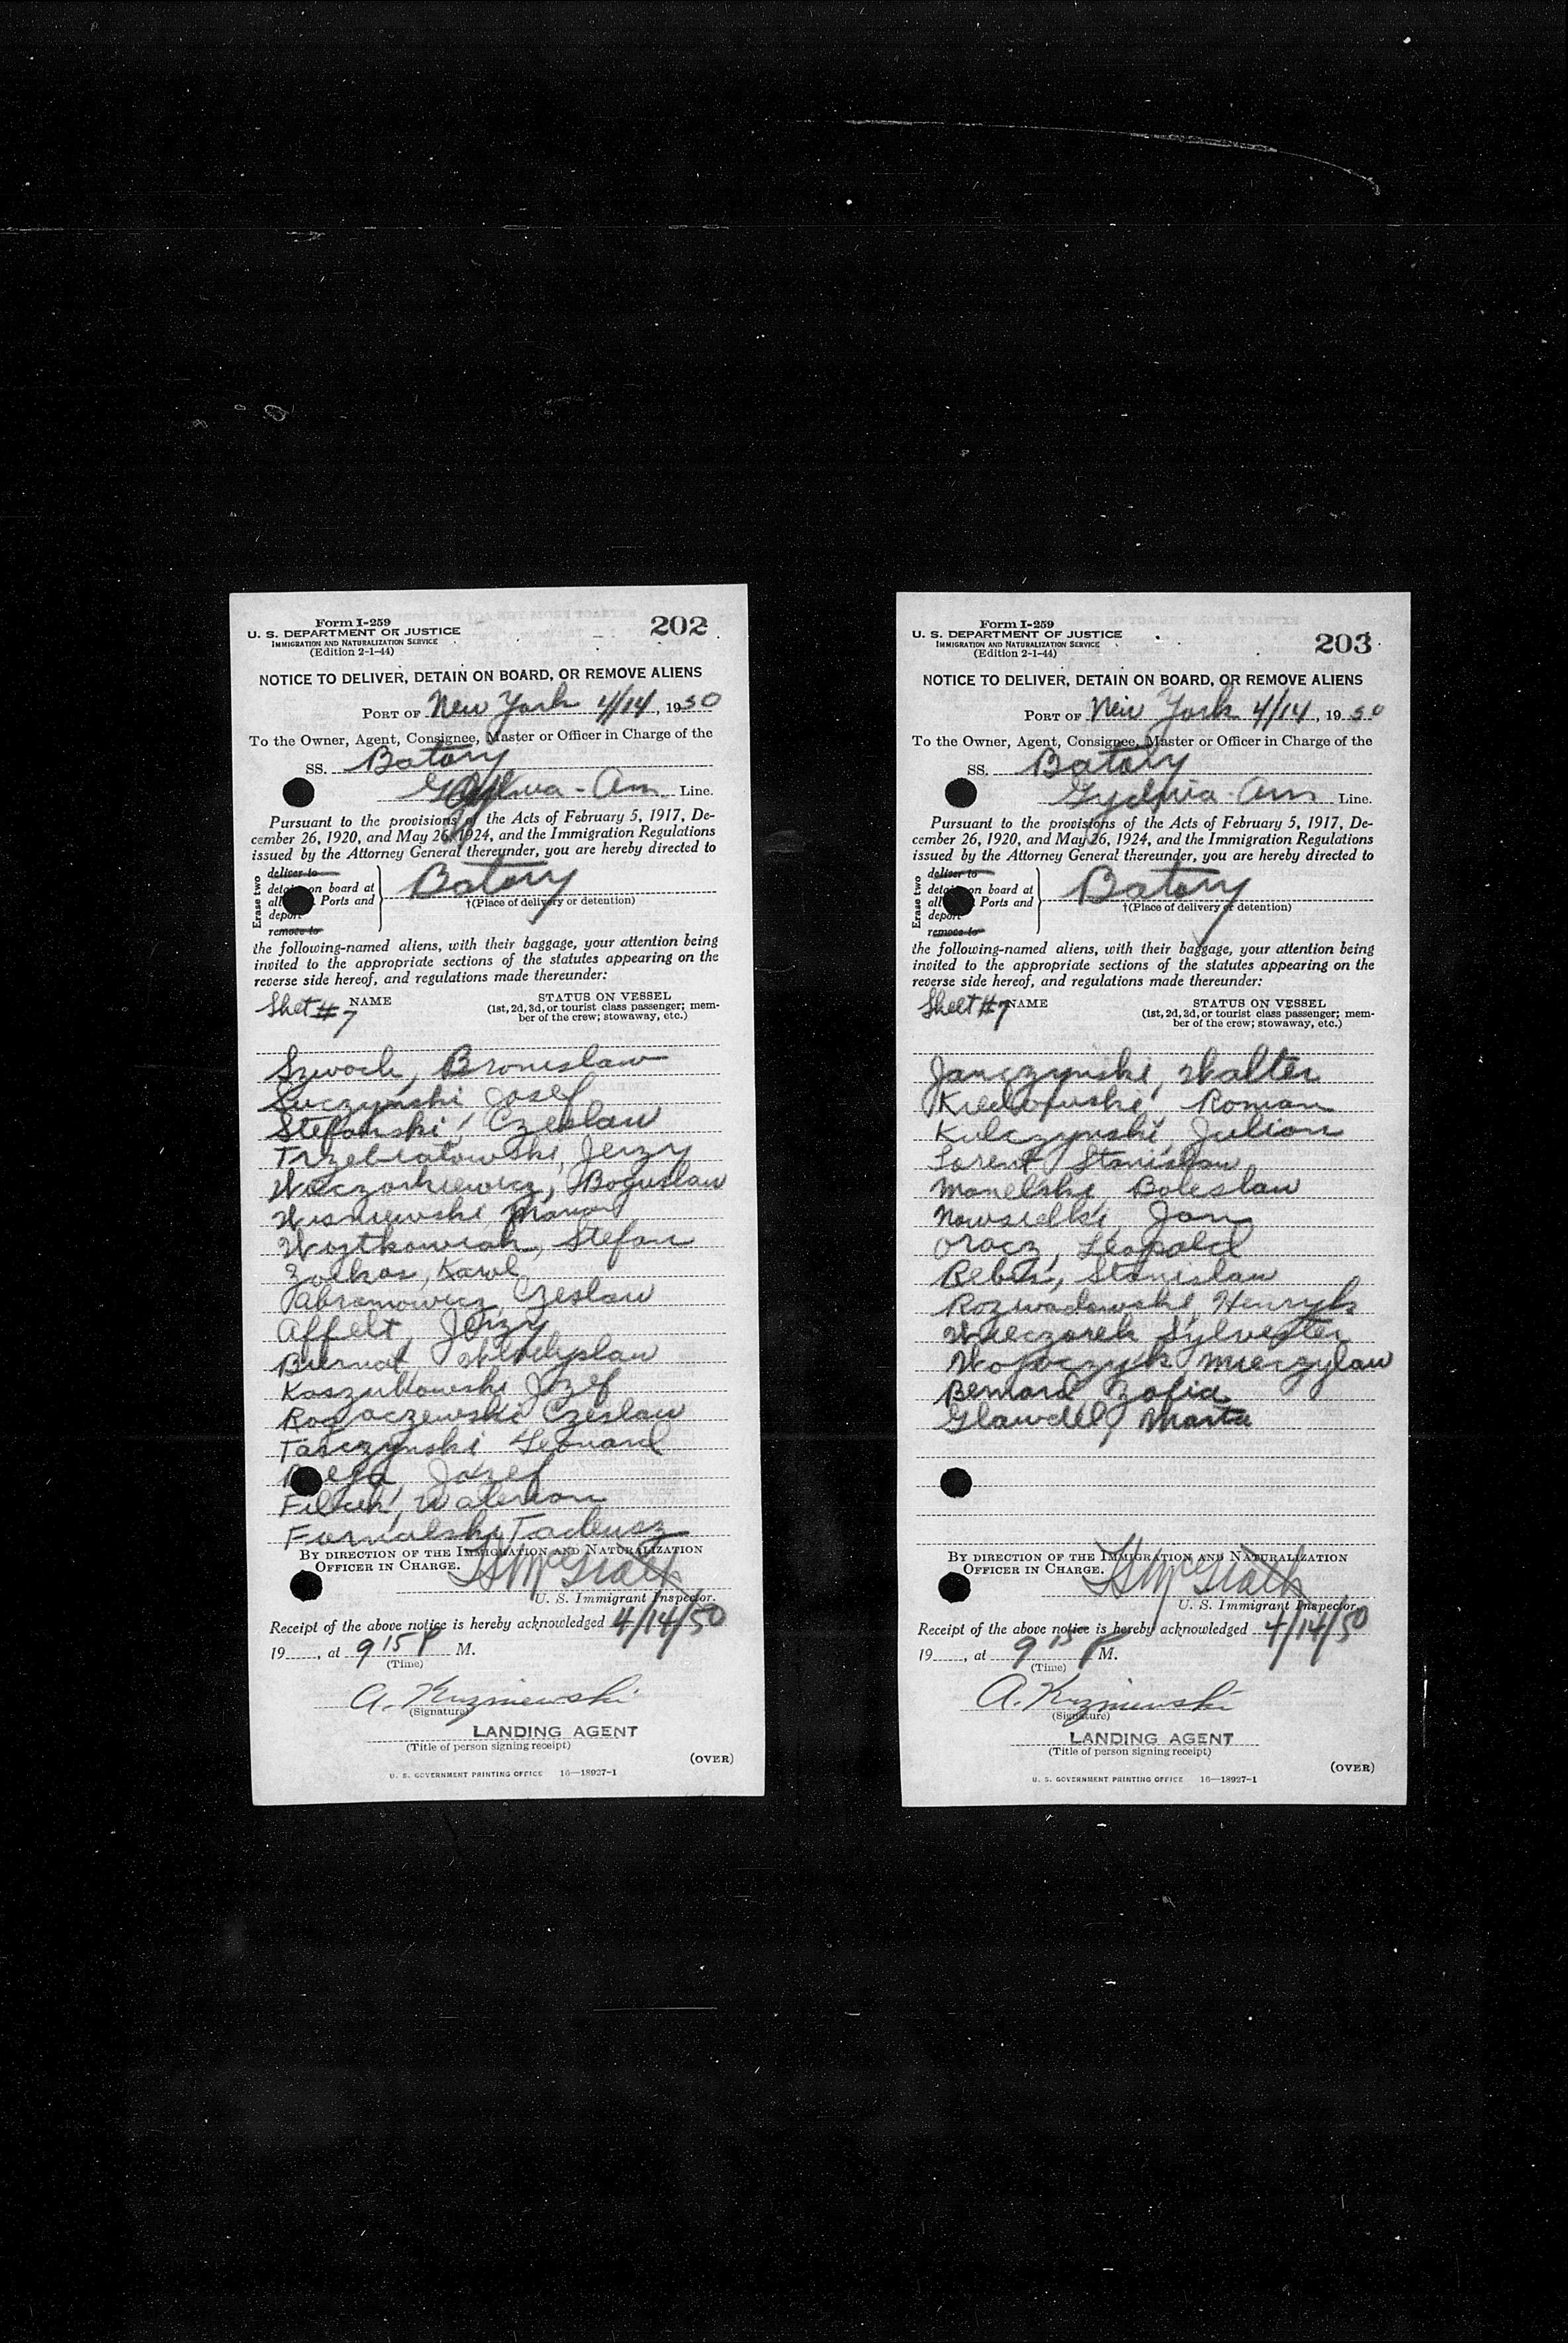 Form I-259
U. S. DEPARTMENT OF JUSTICE
IMMIGRATION AND NATURALIZATION SERVICE
(Edition 2-1-44)
202
NOTICE TO DELIVER, DETAIN ON BOARD, OR REMOVE ALIENS
PORT OF New York 4/14, 1950
To the Owner, Agent, Consignee, Master or Officer in Charge of the
SS. Batory
Gdynia - Am Line.
Pursuant to the provisions of the Acts of February 5, 1917, De-
cember 26, 1920, and May 26, 1924, and the Immigration Regulations
issued by the Attorney General thereunder, you are hereby directed to
Erase two
deliver to
detain on board at
all Ports and
deport
remove to
Batory
†(Place of delivery or detention)
the following-named aliens, with their baggage, your attention being
invited to the appropriate sections of the statutes appearing on the
reverse side hereof, and regulations made thereunder:
Shet # 7 NAME
STATUS ON VESSEL
(1st, 2d, 3d, or tourist class passenger; mem-
ber of the crew; stowaway, etc.)
Szwoch, Bronislaw
Suczynski Josef
Stefanski, Czeslaw
Trzebiatowski, Jerzy
Waczorkiewicz, Boguslaw
Wisniewski, Marian
Wojtkowiak, Stefan
Karol
Abramowicz, Czeslaw
Affelt, Jerzy
Biernat
Kaszubowski Jozef
Rogaczewski Czeslaw
Tarczynski Leonard
Jozef
Walerian
Furnalski Tadeusz
BY DIRECTION OF THE IMMIGRATION AND NATURALIZATION
OFFICER IN CHARGE.
HS McGrath
U. S. Immigrant Inspector.
Receipt of the above notice is hereby acknowledged 4/14/50
19____, at 9 15 P M.
(Time)
A. Kuzniewski
(Signature)
LANDING AGENT
(Title of person signing receipt)
(OVER)
U. S. GOVERNMENT PRINTING OFFICE 16—18927-1
Form I-259
U. S. DEPARTMENT OF JUSTICE
IMMIGRATION AND NATURALIZATION SERVICE
(Edition 2-1-44)
203
NOTICE TO DELIVER, DETAIN ON BOARD, OR REMOVE ALIENS
PORT OF New York 4/14, 1950
To the Owner, Agent, Consignee, Master or Officer in Charge of the
SS. Batory
Gydnia - Am Line.
Pursuant to the provisions of the Acts of February 5, 1917, De-
cember 26, 1920, and May 26, 1924, and the Immigration Regulations
issued by the Attorney General thereunder, you are hereby directed to
Erase two
deliver to
detain on board at
all Ports and
deport
remove to
Batory
†(Place of delivery or detention)
the following-named aliens, with their baggage, your attention being
invited to the appropriate sections of the statutes appearing on the
reverse side hereof, and regulations made thereunder:
Sheet #7 NAME
STATUS ON VESSEL
(1st, 2d, 3d, or tourist class passenger; mem-
ber of the crew; stowaway, etc.)
Janczynski, Walter
Roman
Kulczynski, Julian
Lorent Stanislaw
Manelski, Boleslaw
Nowsielki, Jan
Oracz, Leopold
Stanislaw
Rozwadowski, Henryk
Wieczorek Sylvester
Mieczylaw
Bernard Zofia
Glawdel, Marta
BY DIRECTION OF THE IMMIGRATION AND NATURALIZATION
OFFICER IN CHARGE.
HS McGrath
U. S. Immigrant Inspector.
Receipt of the above notice is hereby acknowledged 4/14/50
19____, at 9 15 P M.
(Time)
A. Kuzniewski
(Signature)
LANDING AGENT
(Title of person signing receipt)
(OVER)
U. S. GOVERNMENT PRINTING OFFICE 16—18927-1